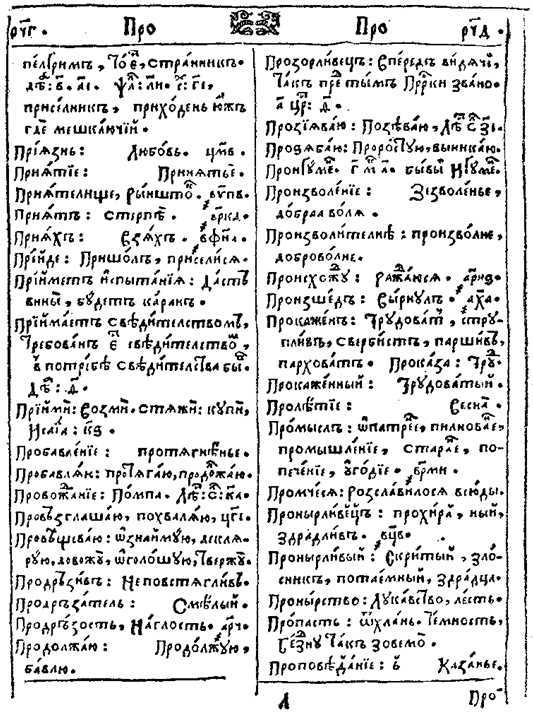 рчг. Про
Про рчд.
пелгримъ, То є, странникъ.
дѣ: в. аі. ѱа: ли. г҃і,
приселникъ, приходень южъ
где мешкаючїй.
Прїѧзнь: Любовь.
Принѧтїе: Принѧтье.
Принѧтелище, рынштокъ.
Принѧтъ: Стерпѣ.
Принѧхъ: Взѧхъ.
Прїиде: Пришолъ, приселисѧ.
Прїиметъ испытанїѧ: Дастъ
вины, будетъ каранъ.
Прїимаетъ свѣдителствомъ,
Требованъ є свѣдителство,
в потребѣ свѣдителства бы.
Дѣ: д.
Прїими: Возми. стѧжи: купи,
Исаїа: кѕ.
Пробавленїе: протѧгненье.
Пробавлѧю: протѧгаю, продолжаю.
Провожанїе: Помпа. Дѣ:
Провъзглашаю, похвалѧю,
Провѣщеваю: ѡзнаймую, деклѧ-
рую, довожу, ѡголошую, твержу.
Продръзивъ: Неповстѧгливъ.
Продръзатель: Смѣлый.
Продръзость, Наглость.
Продолжаю: Продолжую,
бавлю.
Прозорливецъ: Впередъ видѧчи,
Такъ пре тымъ Прркӣ звано.
а цр: д.
Прозїѧваю: Позѣваю,
Прозѧбаю: Проростую, выникаю.
Проигумен. бывый Игумен.
Произволенїе: Зезволенье,
добраѧ волѧ.
Произволителнѣ: произволне,
доброволне.
Происхожу: ражаюсѧ.
Произшедъ: Вырнулъ.
Прокаженъ: Трудоватый, стру-
пливъ, свербистъ, паршивъ,
пархователъ. Проказа: Труд
Прокаженный: Трудоватый.
Пролѣтїе: Весна.
Промыслъ: ѡпатренье, пилнованье,
промышленїе, старанье, по-
печенїе, угодїе.
Промчесѧ: Розславилосѧ всюды.
Пронырливецъ: прохира, ный,
здрадливъ.
Пронырливый: Скритый, зло-
сникъ, потаемный, здрадца.
Пронырство: Лукавство, лесть.
Пропасть: ѡхлань. темность,
безну такъ зовемо.
Проповѣданїе: Казанье.
Про